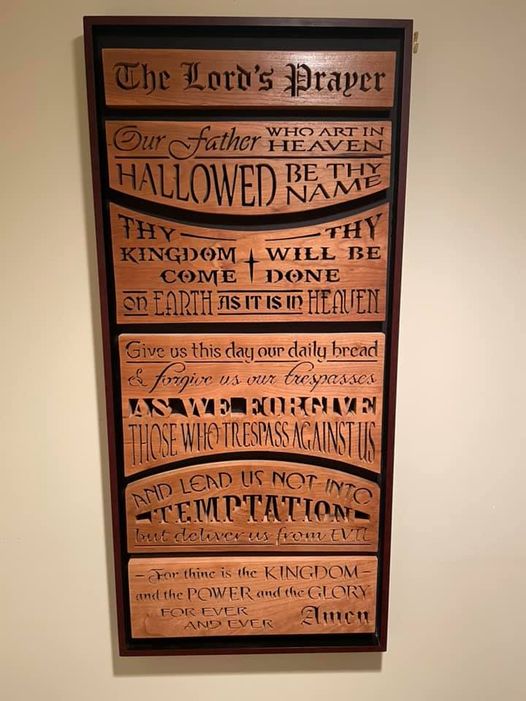 The Lord's Prayer
Our Father WHO ART IN HEAVEN
HALLOWED BE THY NAME
THY THY
KINGDOM WILL BE
COME DONE
ON EARTH AS IT IS IN HEAVEN
Give us this day our daily bread
& forgive us our trespasses
AS WE FORGIVE
THOSE WHO TRESPASS AGAINST US
AND LEAD US NOT INTO
TEMPTATION
but deliver us from EVIL
For thine is the KINGDOM
and the POWER and the GLORY
FOR EVER
AND EVER Amen